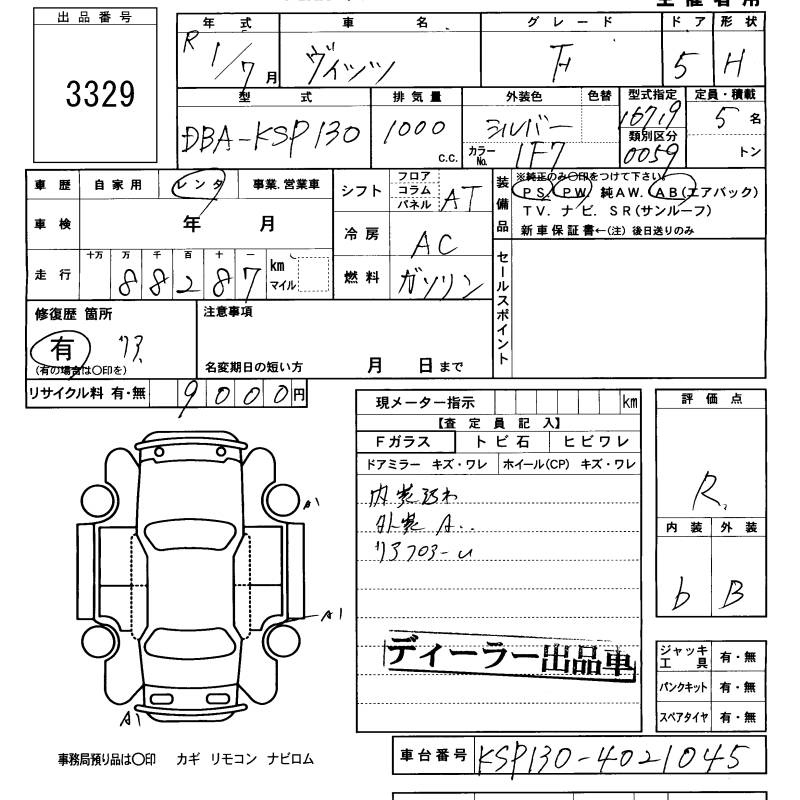 出品番号
3329
年式 車名 グレード ドア 形状
R 1/7 月 ヴィッツ F 5 H
型式 排気量 外装色 色替 型式指定 定員・積載
DBA-KSP130 1000 c.c. シルバー 16719 5 名
カラーNo. 1F7 類別区分 0059 トン
車歴 自家用 レンタ 事業.営業車
車検 年 月
走行 十万 万 千 百 十 一 km マイル
88287
シフト フロア コラム パネル AT
冷房 AC
燃料 ガソリン
装備品 ※純正のみ〇印をつけて下さい。
PS. PW. 純AW. AB(エアバック)
TV. ナビ. SR(サンルーフ)
新車保証書←(注) 後日送りのみ
セールスポイント
修復歴 箇所
有 リア
(有の場合は〇印を)
注意事項
名変期日の短い方 月 日まで
リサイクル料 有・無 9000円
現メーター指示 km
【査定員記入】
Fガラス トビ石 ヒビワレ
ドアミラー キズ・ワレ ホイール(CP) キズ・ワレ
内装汚れ
外装 A..
リアフロアーU
ディーラー出品車
評価点
R
内装 外装
b B
A1
A1
A1
ジャッキ工具 有・無
パンクキット 有・無
スペアタイヤ 有・無
事務局預り品は〇印 カギ リモコン ナビロム
車台番号 KSP130-4021045